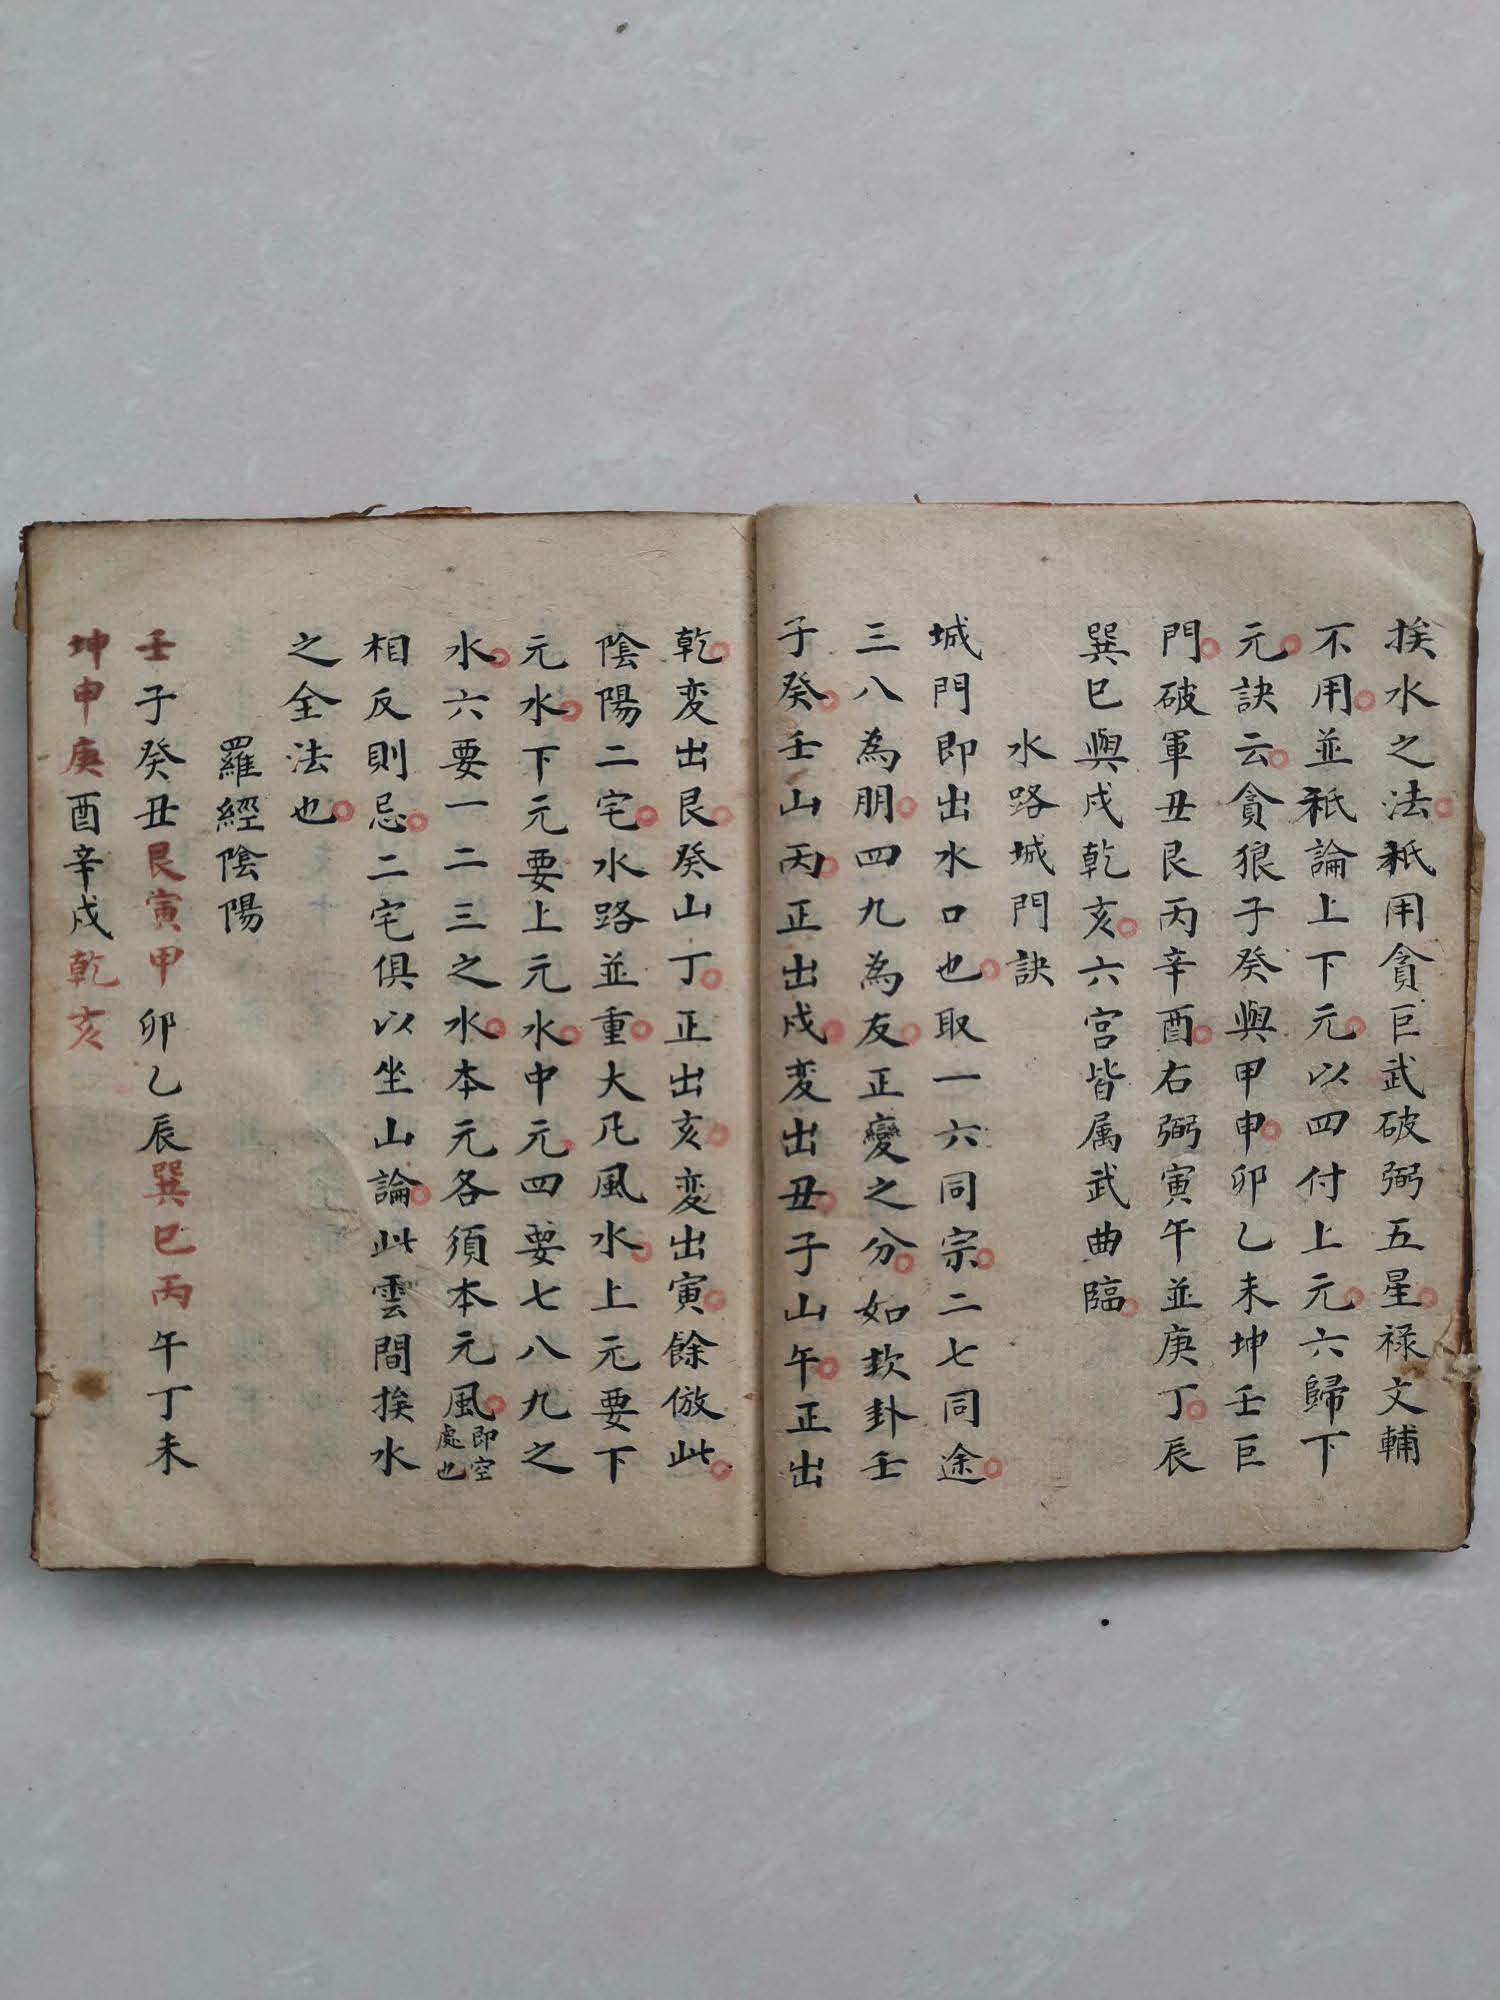 挨水之法秖用貪巨武破弼五星祿文輔
不用並秖論上下元以四付上元六歸下
元訣云貪狼子癸與甲申卯乙未坤壬巨
門破軍丑艮丙辛酉右弼寅午並庚丁辰
巽巳與戌乾亥六宮皆属武曲臨
水路城門訣
城門即出水口也取一六同宗二七同途
三八為朋四九為友正變之分如坎卦壬
子癸壬山丙正出戌変出丑子山午正出
乾変出艮癸山丁正出亥変出寅餘倣此
陰陽二宅水路並重大凡風水上元要下
元水下元要上元水中元四要七八九之
水六要一二三之水本元各須本元風即空處也
相反則忌二宅俱以坐山論此雲間挨水
之全法也
羅經陰陽
壬子癸丑艮寅甲卯乙辰巽巳丙午丁未
坤申庚酉辛戌乾亥